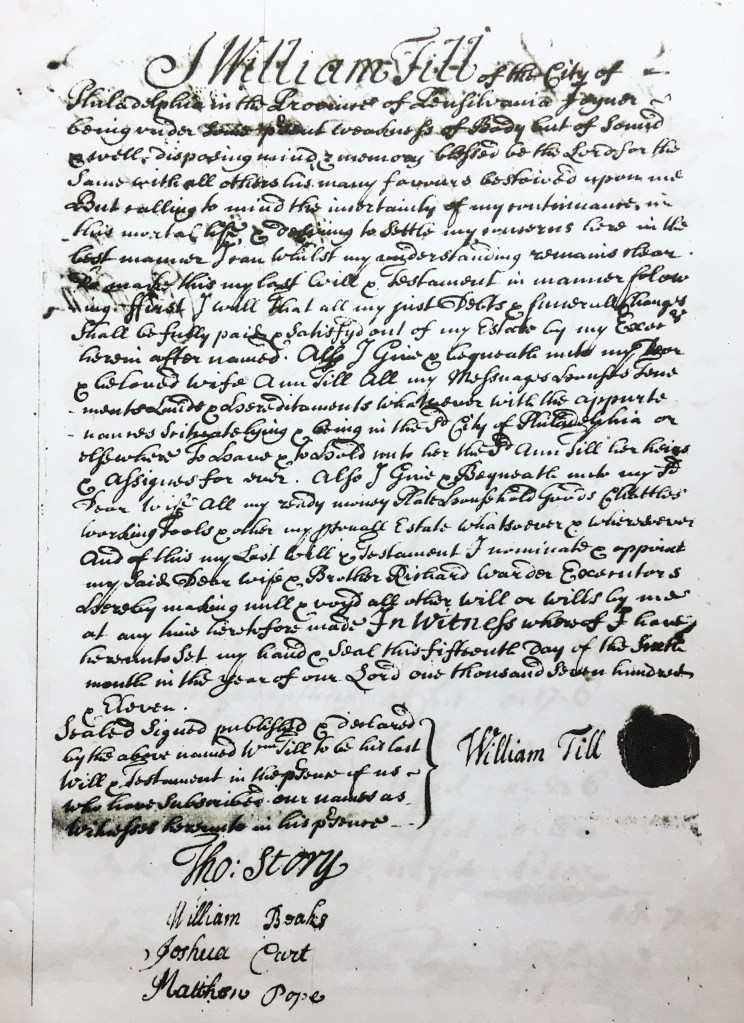 I William Till of the City of
Philadelphia in the Province of Pensilvania Joyner
being under some p'sent weakness of Body but of Sound
& well disposing mind & memory blessed be the Lord for the
Same with all others his many favours bestowed upon me
But calling to mind the incertainty of my continuance in
this mortal life & desiring to settle my concerns here in the
best manner I can whilst my understanding remains clear
Do make this my last Will & Testament in manner folow
ing ffirst I will That all my just Debts & funerall Charges
Shall be fully paid & satisfyd out of my Estate by my Execrs
herein after named. Also I Give & bequeath unto my Dear
& beloved wife Ann Till All my Messuages Houses Tene
ments Lands & Hereditaments whatsoever with the appurte
nances Scituate lying & being in the Sd City of Philadelphia or
elsewhere To Have & to Hold unto her the Sd Ann Till her heirs
& Assignes for ever. Also I Give & Bequeath unto my Sd
Dear wife All my ready money Plate Household Goods Chattles
working Tools & other my p'sonall Estate whatsoever & wheresoever
And of this my Last Will & Testament I nominate & appoint
my Said Dear wife & Brother Richard Warder Executors
Hereby making null & voyd all other will or wills by me
at any time heretofore made In Witness whereof I have
hereunto Set my hand & Seal this fifteenth Day of the Sixth
month in the year of our Lord one thousand Seven hundred
& Eleven.
Sealed Signed published & declared
by the above named Wm Till to be his last
Will & Testament in the p'sence of us
who have Subscribed our names as
Witnesses hereunto in his p'sence
William Till
Tho: Story
William Beaks
Joshua Cart
Matthew Pope